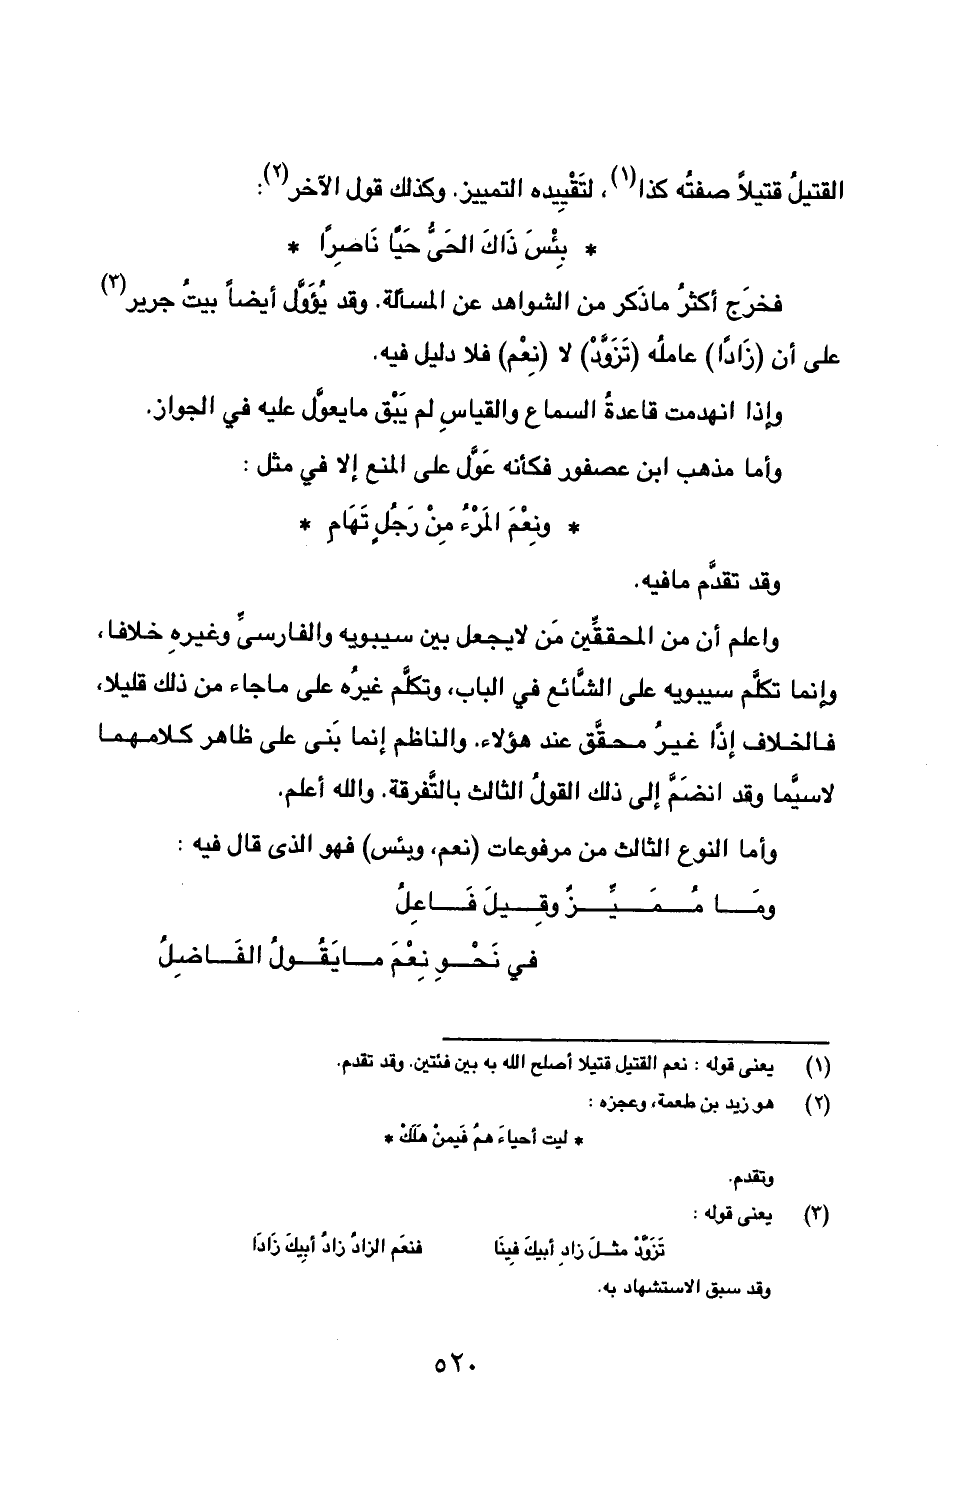 القتيلُ قتيلاً صفتُه كذا(١)، لتَقْيِيده التمييز. وكذلك قول الآخر(٢):
* بِئْسَ ذَاكَ الحَيُّ حَيًّا نَاصِرًا *
فخرَج أكثرُ ماذَكر من الشواهد عن المسألة. وقد يُؤَوَّل أيضاً بيتُ جرير(٣)
على أن (زَادًا) عاملُه (تَزَوَّدْ) لا (نِعْم) فلا دليل فيه.
وإذا انهدمت قاعدةُ السماع والقياسِ لم يَبْق مايعولَّ عليه في الجواز.
وأما مذهب ابن عصفور فكأنه عَوَّل على المنع إلا في مثل :
* ونِعْمَ المَرْءُ مِنْ رَجُلٍ تَهَامِ *
وقد تقدَّم مافيه.
واعلم أن من المحققِّين مَن لايجعل بين سيبويه والفارسىِّ وغيرِه خلافا،
وإنما تكلَّم سيبويه على الشَّائع في الباب، وتكلَّم غيرُه على ماجاء من ذلك قليلا،
فالخلاف إذًا غيرُ محقَّق عند هؤلاء. والناظم إنما بَنى على ظاهر كلامهما
لاسيَّما وقد انضَمَّ إلى ذلك القولُ الثالث بالتَّفرقة. والله أعلم.
وأما النوع الثالث من مرفوعات (نعم، وبئس) فهو الذى قال فيه :
ومَا مُمَيِّزٌ وقِيلَ فَاعِلُ
في نَحْوِ نِعْمَ مايَقُولُ الفَاضِلُ
(١) يعنى قوله : نعم القتيل قتيلا أصلح الله به بين فئتين. وقد تقدم.
(٢) هو زيد بن طعمة، وعجزه :
* ليت أحياءَ همُ فَيمنْ هَلَكْ *
وتقدم.
(٣) يعنى قوله :
تَزَوَّدْ مثلَ زادِ أبيكَ فِينَا فنعَم الزادُ زادُ أبيكَ زَادَا
وقد سبق الاستشهاد به.
٥٢٠